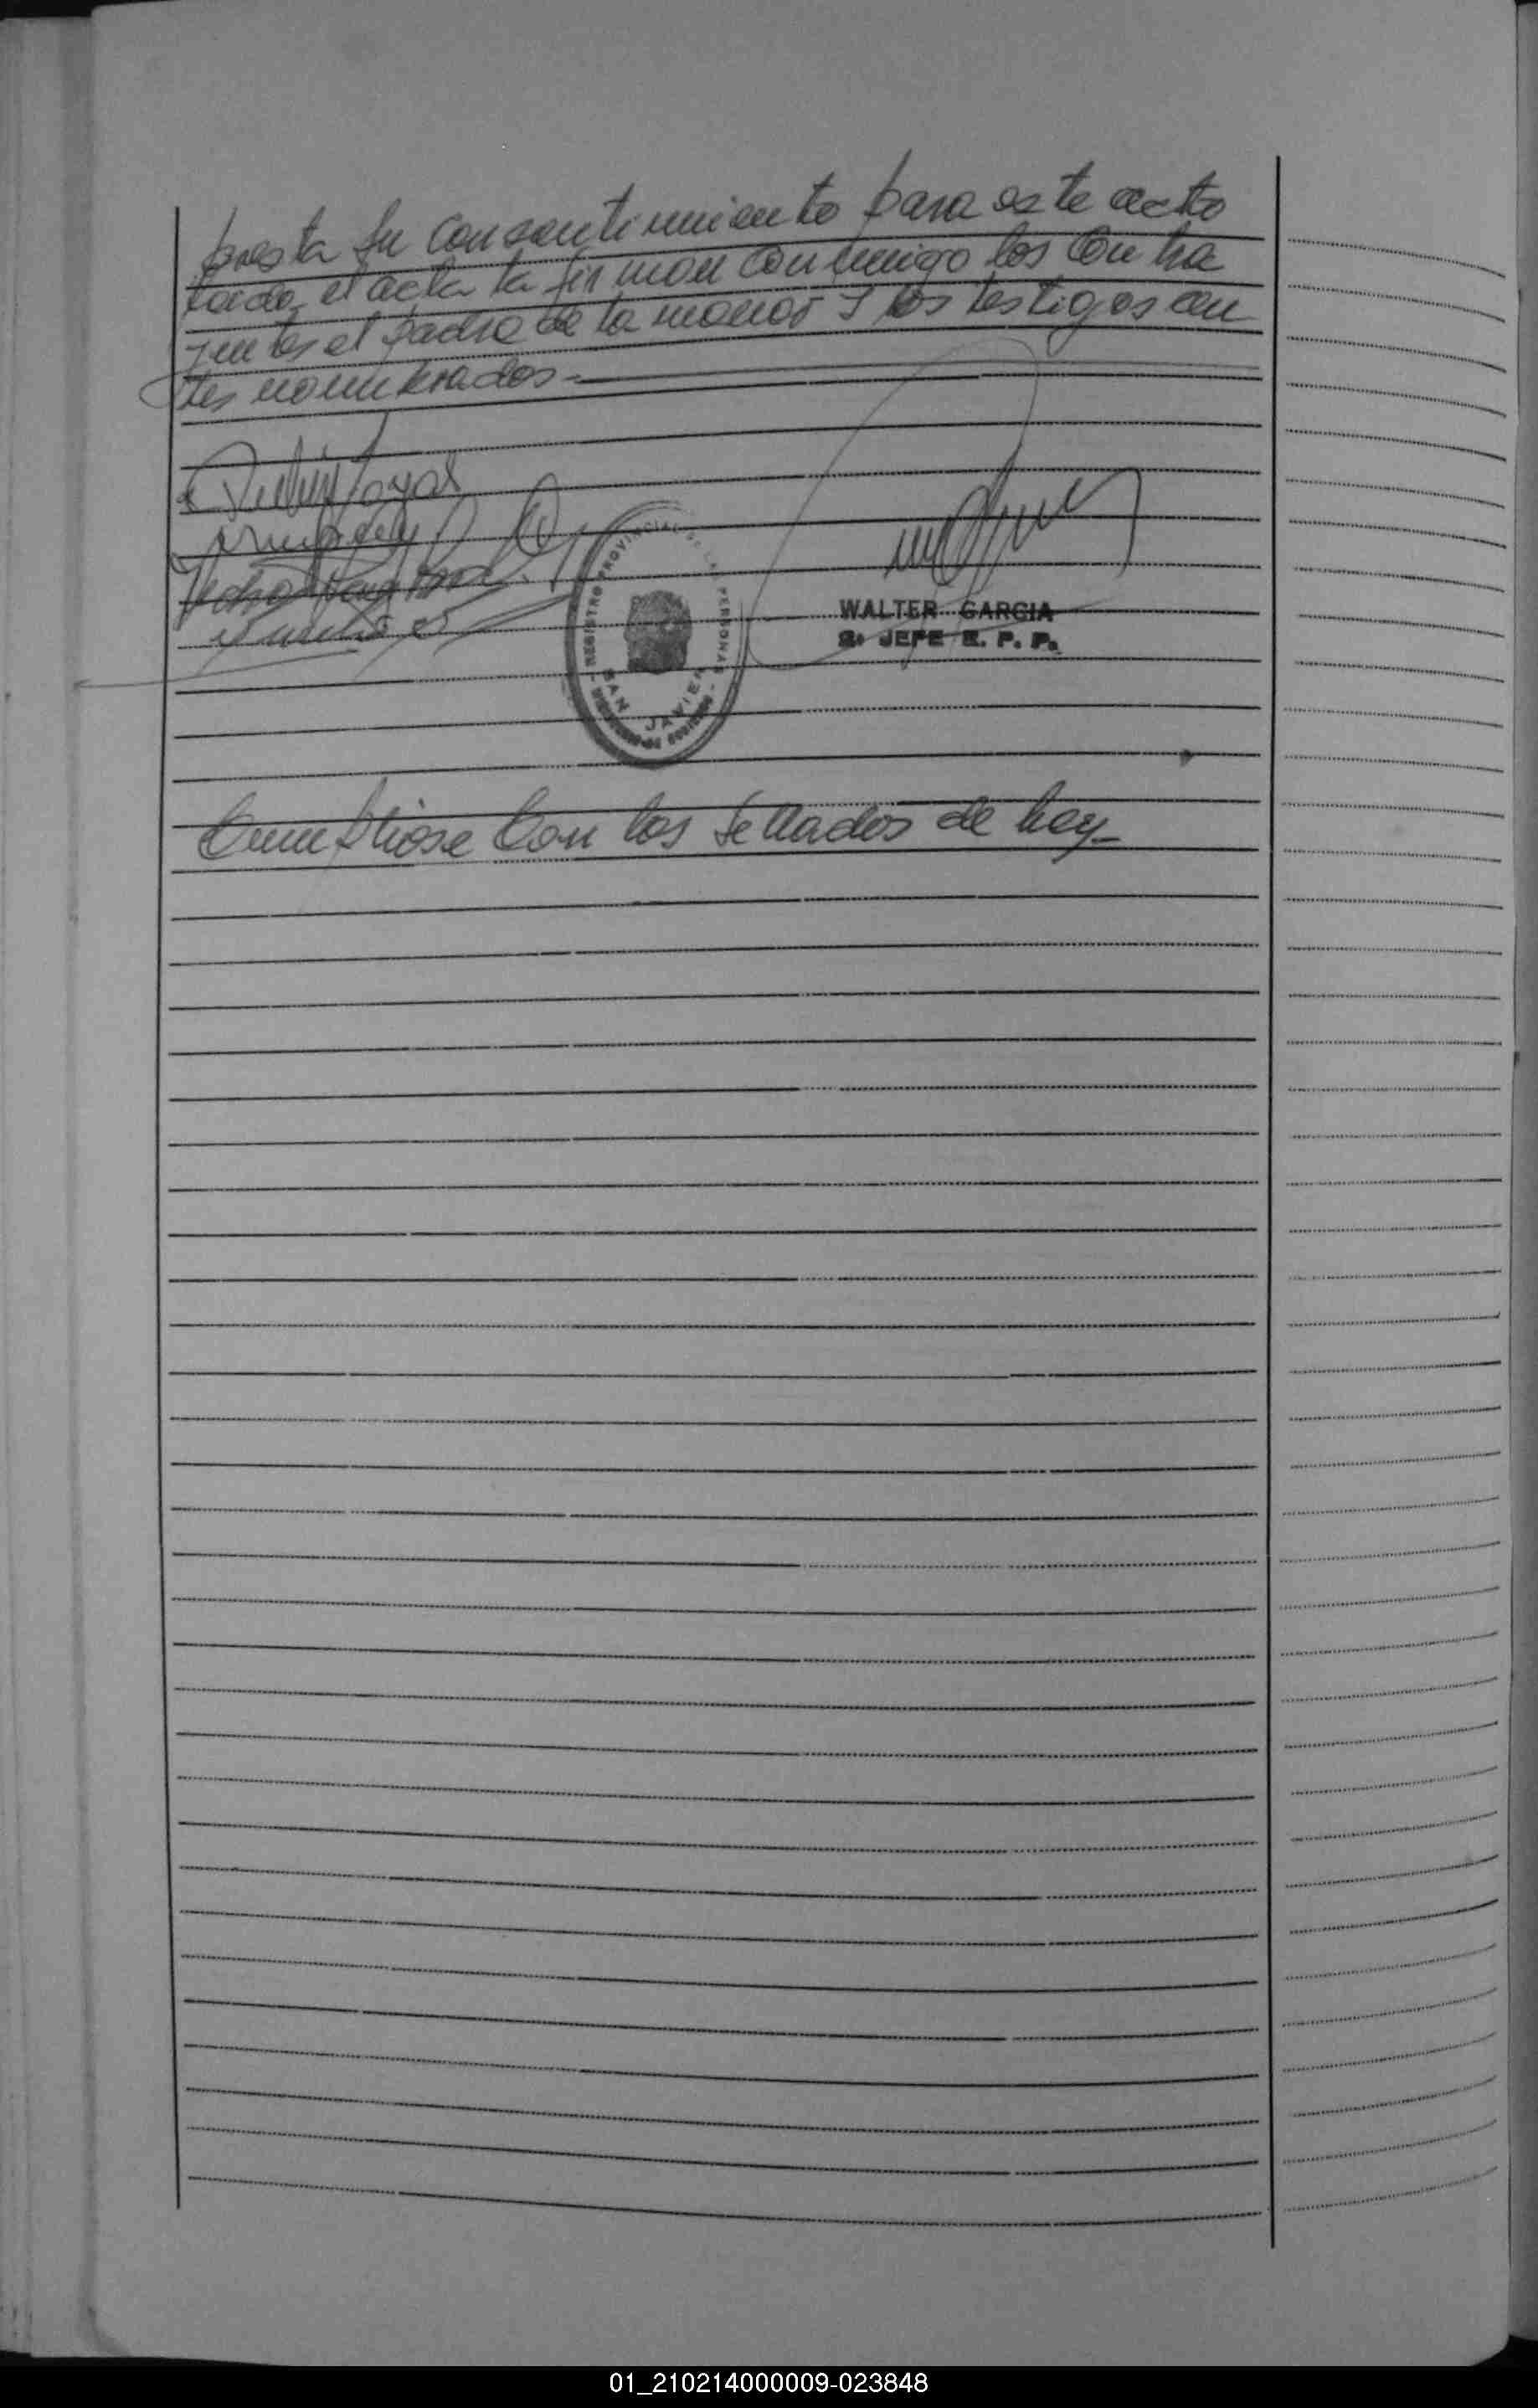 presta su consentimiento para este acto
leida el acta la firman conmigo los contra
yentes el padre de la menor y los testigos an
tes nombrados-
REGISTRO PROVINCIAL DE LAS PERSONAS
SAN JAVIER
WALTER GARCIA
JEFE R. P. P.
Cumpliose con los sellados de ley-
01_210214000009-023848